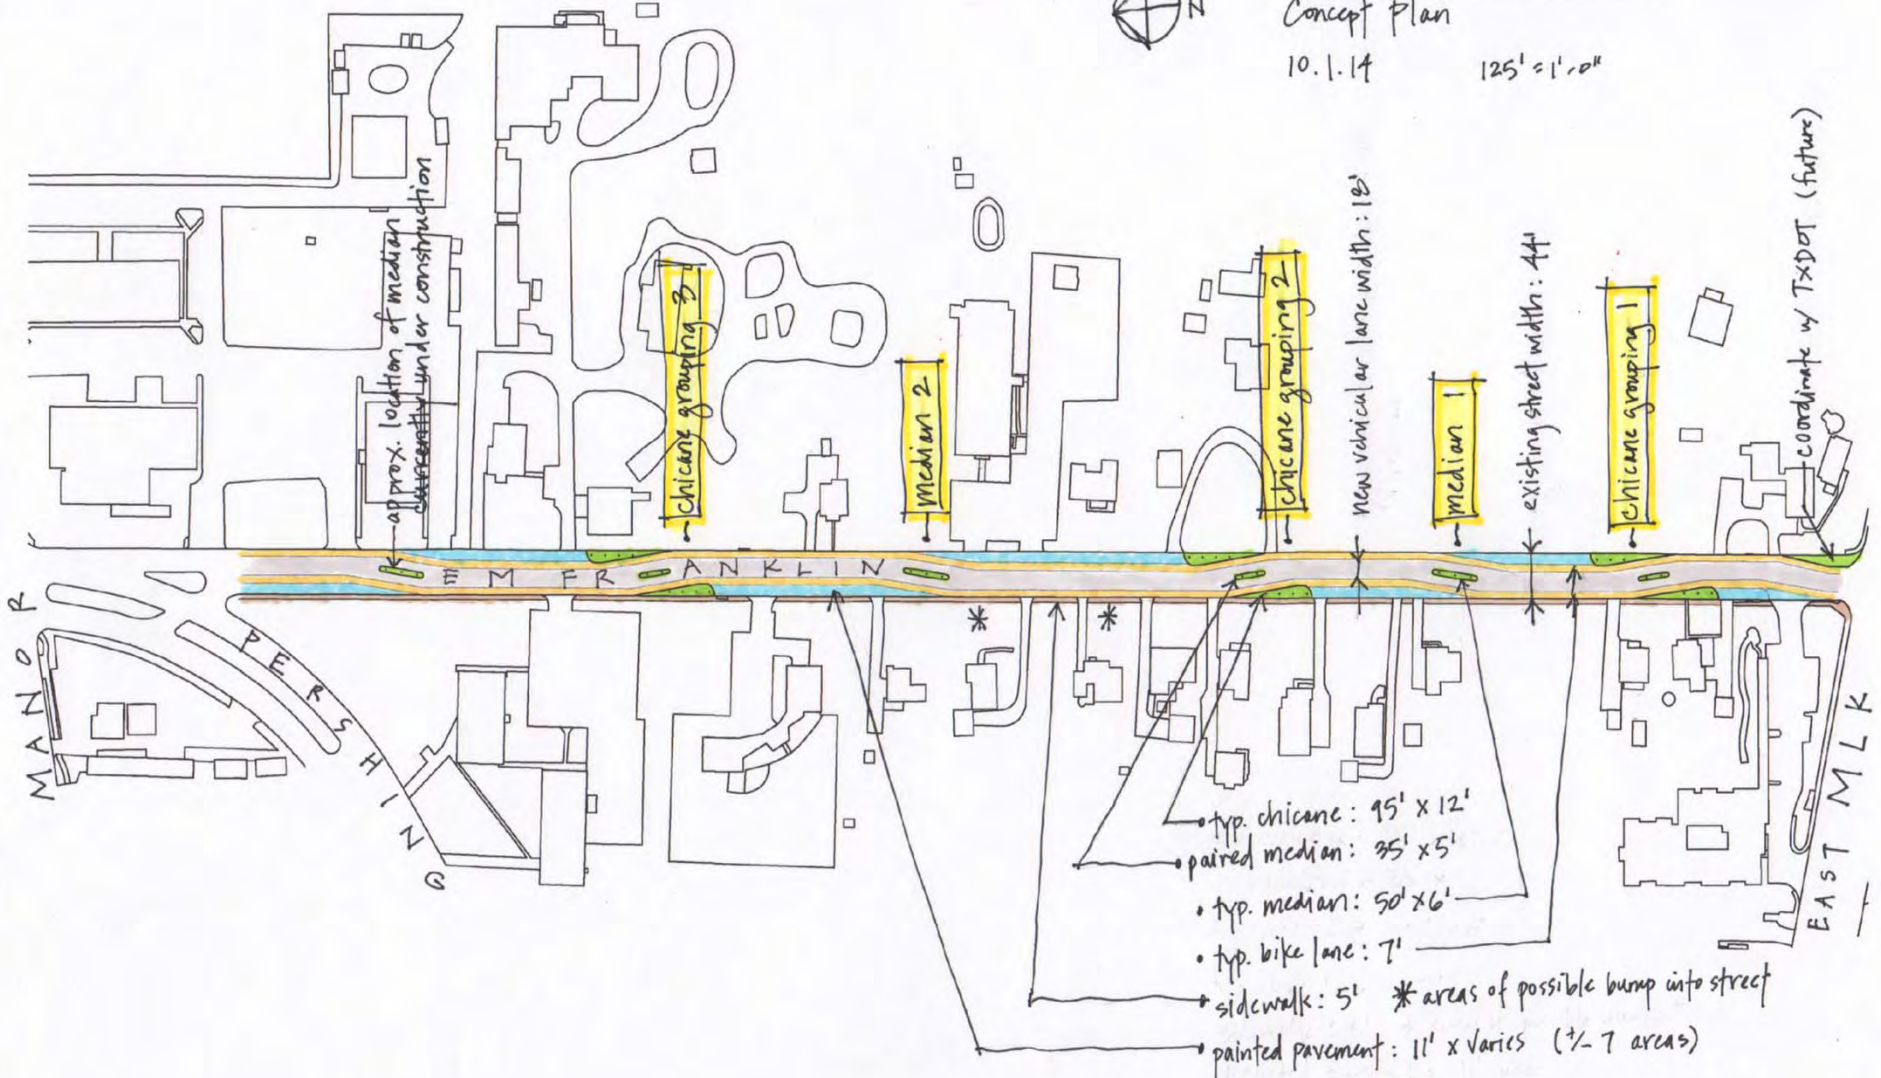 N
Concept plan
10.1.14
125' = 1'-0"
approx. location of median
currently under construction
chicane grouping 3
median 2
chicane grouping 2
new vehicular lane width: 18'
median 1
existing street width: 44'
chicane grouping 1
coordinate w/ TxDOT (future)
EM FRANKLIN
MANOR
PERSHING
EAST MLK
* *
• typ. chicane: 95' x 12'
• paired median: 35' x 5'
• typ. median: 50' x 6'
• typ. bike lane: 7'
• sidewalk: 5' * areas of possible bump into street
• painted pavement: 11' x varies (+/- 7 areas)